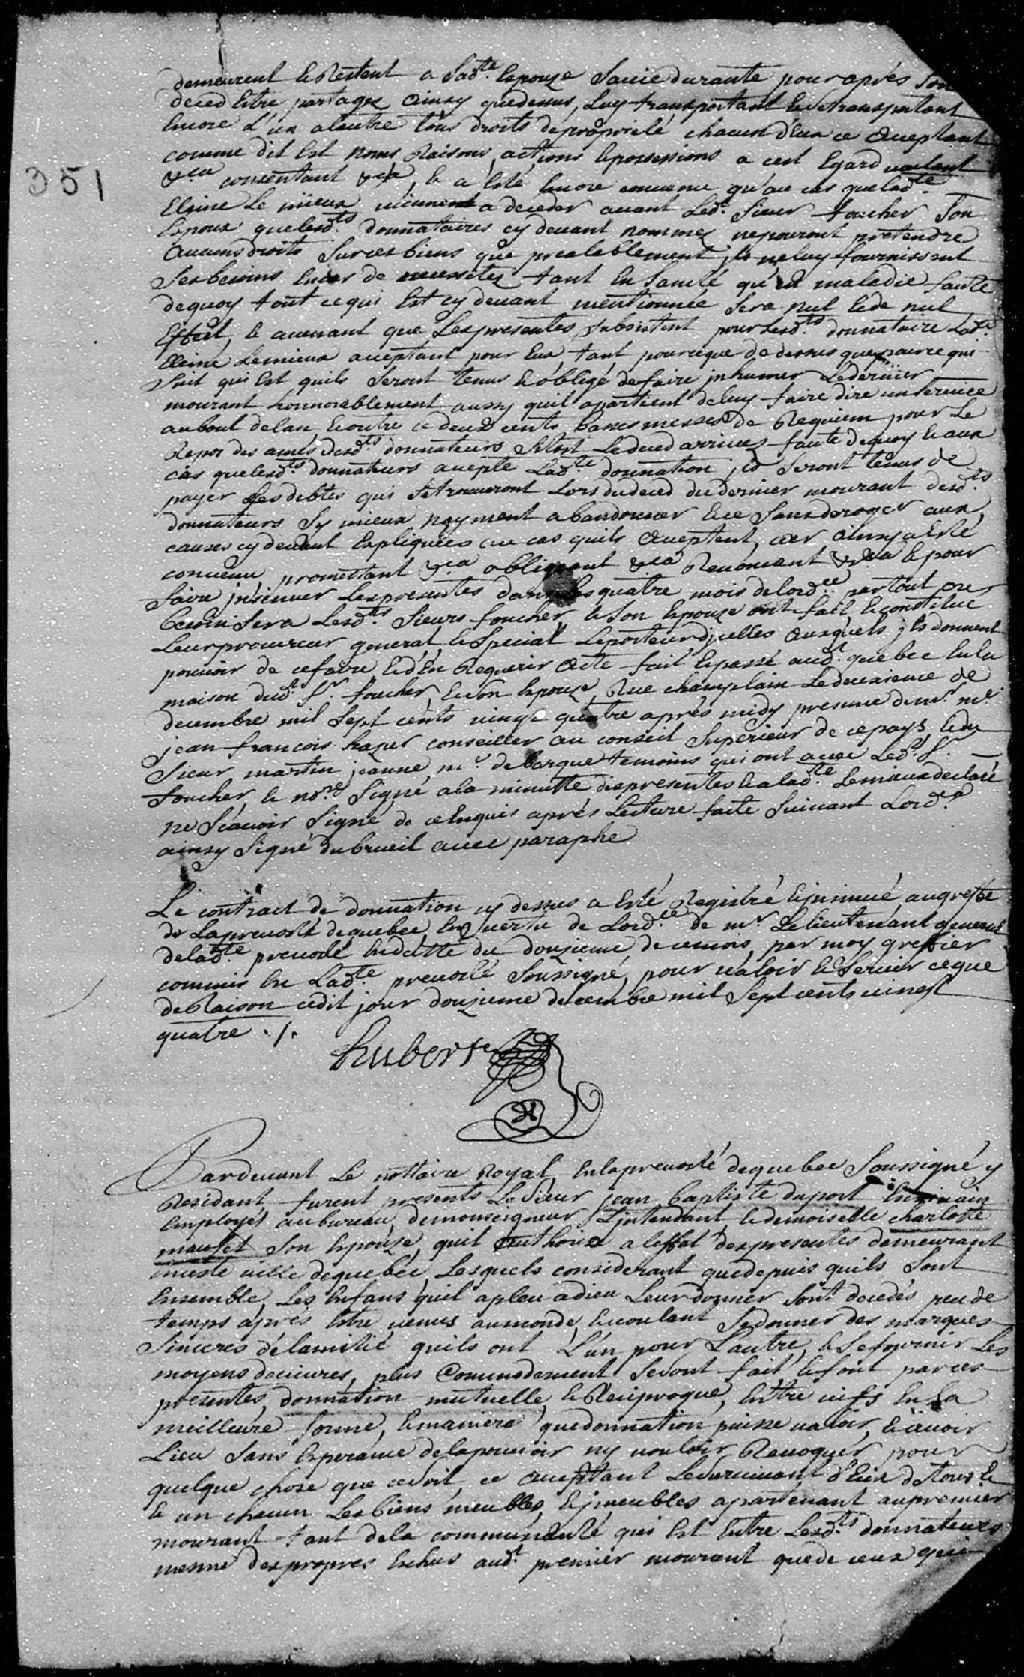 demeurent & restent a sad.te Epouze sa vie durante pour aprés son
deced estre partagez ainsy que dessus, Luy transportant & se transportant
Encore L'un a l'autre tous droits de proprieté chacun d'eux ce acceptant
comme dit Est noms Raisons, actions & possessions a cest Egard voulant
&ca consentant &ca, & a Esté Encore convenu qu'au cas que lad.te
351
Eleine Le mieux vienne a deceder avant Led.t Sieur foucher son
Epoux que lesd.ts donnataires cy devant nommez ne pouront pretendre
aucuns droits sur ces biens que prealablement ils ne luy fournissent
ses besoins & de necessitez tant En santé qu'En maladie faute
de quoy tout ce qui Est cy devant mentionnée sera nul & de nul
Effect, & avenant que Les presentes subsistent pour lesd.ts donnataire Lad.te
Eleine Lemieux aceptant pour Eux, tant pour ce que de dessus que parce qui
suit qui Est quils seront tenus & obligé de faire inhumer Le dernier
mourant honnorablement aussy quil apartient de luy faire dire un service
au bout de l'an & outre ce deux cents basses messes de Requiem pour Le
Repos des ames desd.ts donnateurs sitost Le deced arrivez faute de quoy & aux
cas que lesd.ts donnateurs acepte Lad.te donnation ils seront tenus de
payer Les debtes qui se trouveront Lors du deced du dernier mourant desd.ts
donnateurs sy mieux nayment abandonner & ce sans deroger aux
causes cy devant Expliquées au cas quils acceptent, car ainsy a Esté
convenu promettant &ca obligeant &ca Renonceant &ca & pour
faire insinuer Les presentes dans les quatre mois de lord.ce partout ou
besoin sera Lesd.ts Sieurs foucher & son Epouze ont fait & constitué
Leur procureur general & special Le porteur dicelles auxquels ils donnent
pouvoir de ce faire & d'En Requerir acte fait & passé aud.t quebec En la
maison dud.t S.r foucher & son Epouze, Rue champlain Le deuxieme de
decembre mil sept cents vingt quatre aprés midy presence de m.r m.e
jean françois hazeur conseiller au conseil superieur de ce pays, & du
Sieur martin jeanne m.e de barque temoins qui ont avec Led.t S.r
foucher & no.re signé a la minutte des presentes & a lad.te Lemieux declaré
ne sçavoir signé de ce Enquis aprés Lecture faite suivant Lord.ce
ainsy signé dubreuil avec paraphe
Le contract de donnation cy dessus a Esté Registré & insinué au greffe
de La prevosté de quebec En vertu de Lord.ce de m.r Le lieutenant general
de lad.te prevosté En datte du douzieme de ce mois, par moy greffier
commis En Lad.te prevosté soussigné, pour valoir & servir ce que
de Raison cedit jour douzieme decembre mil sept cents vingt
quatre ./.
hubert
Pardevant Le nottaire Royal En la prevosté de quebec soussigné y
Residant, furent presents Le Sieur jean baptiste duport Ecrivain
Employé au bureau, de monseigneur L'intendant & demoiselle charlotte
maufet son Epouze quil authorise a l'effet des presentes demeurant
En ceste ville de quebec, Lesquels considerant que depuis quils sont
Ensemble, Les Enfans quel a pleu a dieu Leur donner sont decedés peu de
temps aprés Estre venus au monde, & voulant se donner des marques
sinceres de lamitié quils ont L'un pour L'autre, & se fournir Les
moyens de vivre, plus Commodement se sont fait & font par ces
presentes, donnation mutuelle, & Reciproque, Entre vifs En La
meilleure forme, & maniere que donnation puisse valoir, & avoir
Lieu sans Esperance de la pouvoir ny vouloir Revoquer pour
quelque chose que ce soit, ce acceptant Le survivant d'Eux de tous &
& un chacun Les biens meubles, & immeubles apartenant au premier
mourant tant de la communauté qui Est Entre Lesd.ts donnateurs
mesme des propres Echus aud.t premier mourant que de ceux que